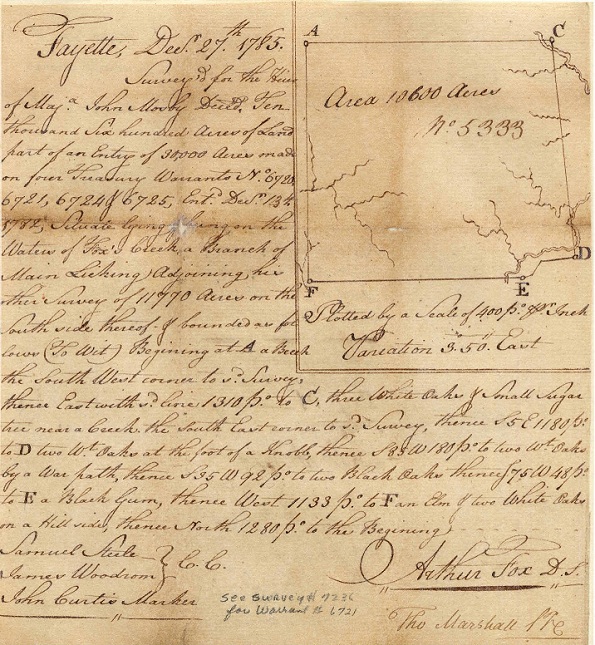 Fayette, Decr. 27th. 1785.
Survey'd for the Heirs
of Maja. John Mosby Decd. Ten
thousand Six hundred Acres of Land
part of an Entry of 30,000 Acres made
on four Treasury Warrants No. 6720
6721, 6724 & 6725, Entd. Decr. 13th
1782, Situate lying & being on the
Waters of Fox's Creek, a Branch of
Main Licking) Adjoining, his
other Survey of 11770 Acres on the
South side thereof & bounded as fol
lows (To Wit) Begining at A a Beech
the South West corner to sd. Survey,
thence East with sd. line 1310 po. to C, three White Oaks & Small Sugar
tree near a Creek the South East corner to sd. Survey, thence S 5 E 1180 po
to D two Wt. Oaks at the foot of a Knob, thence S 83 W 180 po. to two Wt. Oaks
by a War path, thence S 35 W 92 po. to two Black Oaks thence 75 W 48 po
to E a Black Gum, thence West 1133 po. to F an Elm & two White Oaks
on a Hill side, thence North 1280 po. to the Begining
Samuel Steele
James Woodrom } C. C.
John Curtis Marker
Arthur Fox D. S.
Tho Marshall
See Survey # 7236
for Warrant # 6721
A
C
Area 10600 Acres
No 5333
D
F
E
Plotted by a Scale of 400 po. pr. Inch
Variation 3.50. East